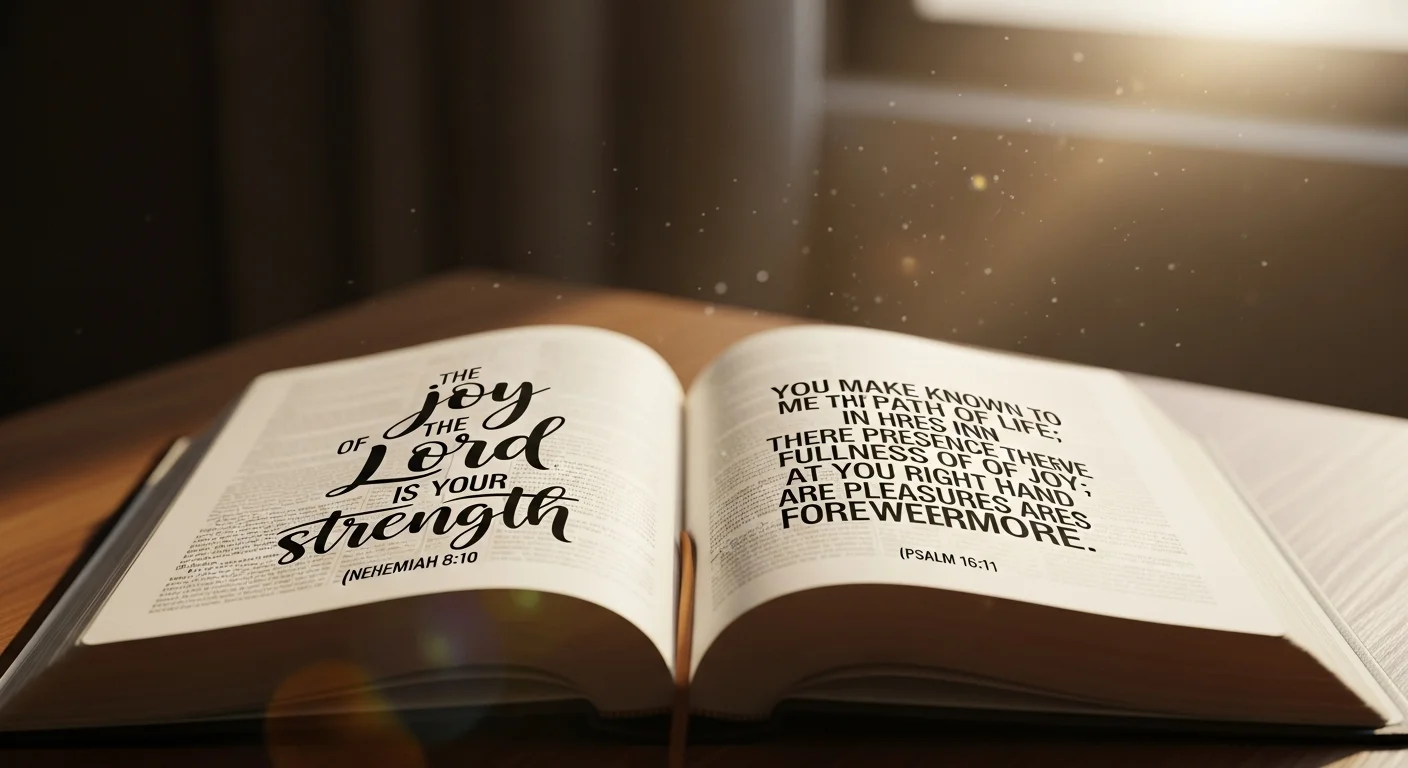 THE
joy
OF THE
Lord
IS YOUR
strength
(NEHEMIAH 8:10
YOU MAKE KNOWN TO
ME THI PATH OF LIFE;
IN HRES INN
THERE PRESENCE THERVE
FULLNESS OF OF JOY;
AT YOU RIGHT HAND ;
ARE PLEASURES ARES
FOREWEERMORE.
(PSALM 16:11